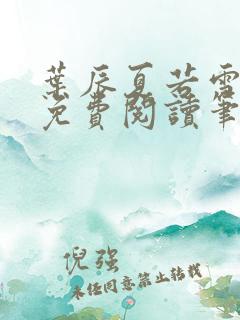 葉辰夏若雪
免費閱讀筆
倪强
未經同意禁止轉載